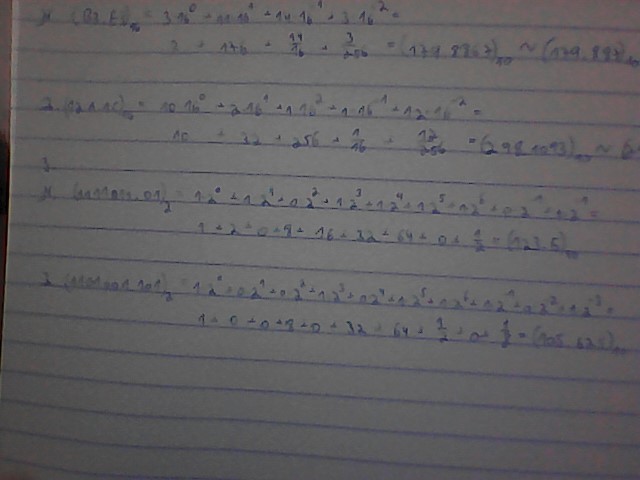 = 3 16⁰ + 11 16¹ + 14 16¹ + 3 16² =
3 + 176 + 14/16 + 3/256 = (179.8867)₁₀ ~ (179.887)₁₀
2. = 10 16⁰ + 2 16¹ + 1 16² + 1 16¹ + 12 16² =
10 + 32 + 256 + 1/16 + 12/256 = (298.1093)₁₀ ~
3.
(1111011.01)₂ = 1 2⁰ + 1 2¹ + 0 2² + 1 2³ + 1 2⁴ + 1 2⁵ + 1 2⁶ + 0 2¹ + 1 2¹ =
1 + 2 + 0 + 8 + 16 + 32 + 64 + 0 + 1/2 = (123.5)₁₀
2. (1101001.101)₂ = 1 2⁰ + 0 2¹ + 0 2² + 1 2³ + 0 2⁴ + 1 2⁵ + 1 2⁶ + 1 2¹ + 0 2² + 1 2⁻³ =
1 + 0 + 0 + 8 + 0 + 32 + 64 + 1/2 + 0 + = (105.625)₁₀